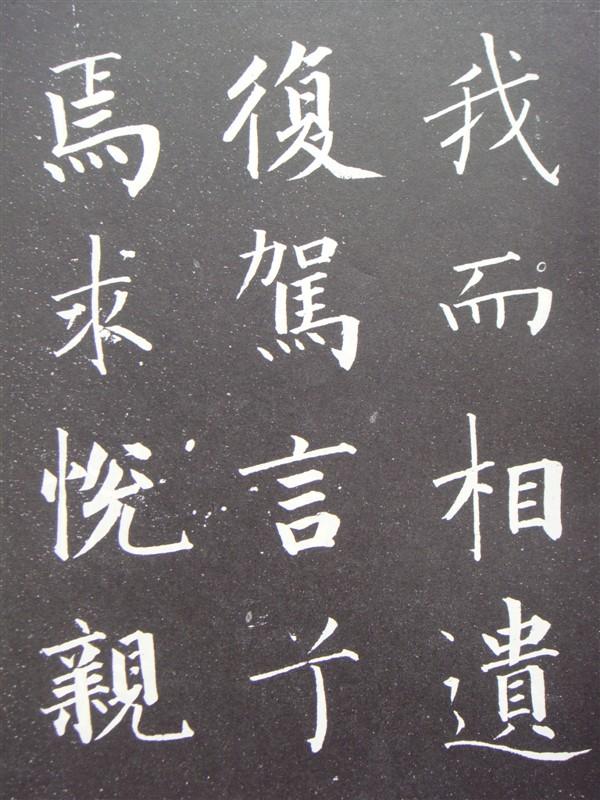 我而相遺
復駕言兮
焉求悅親